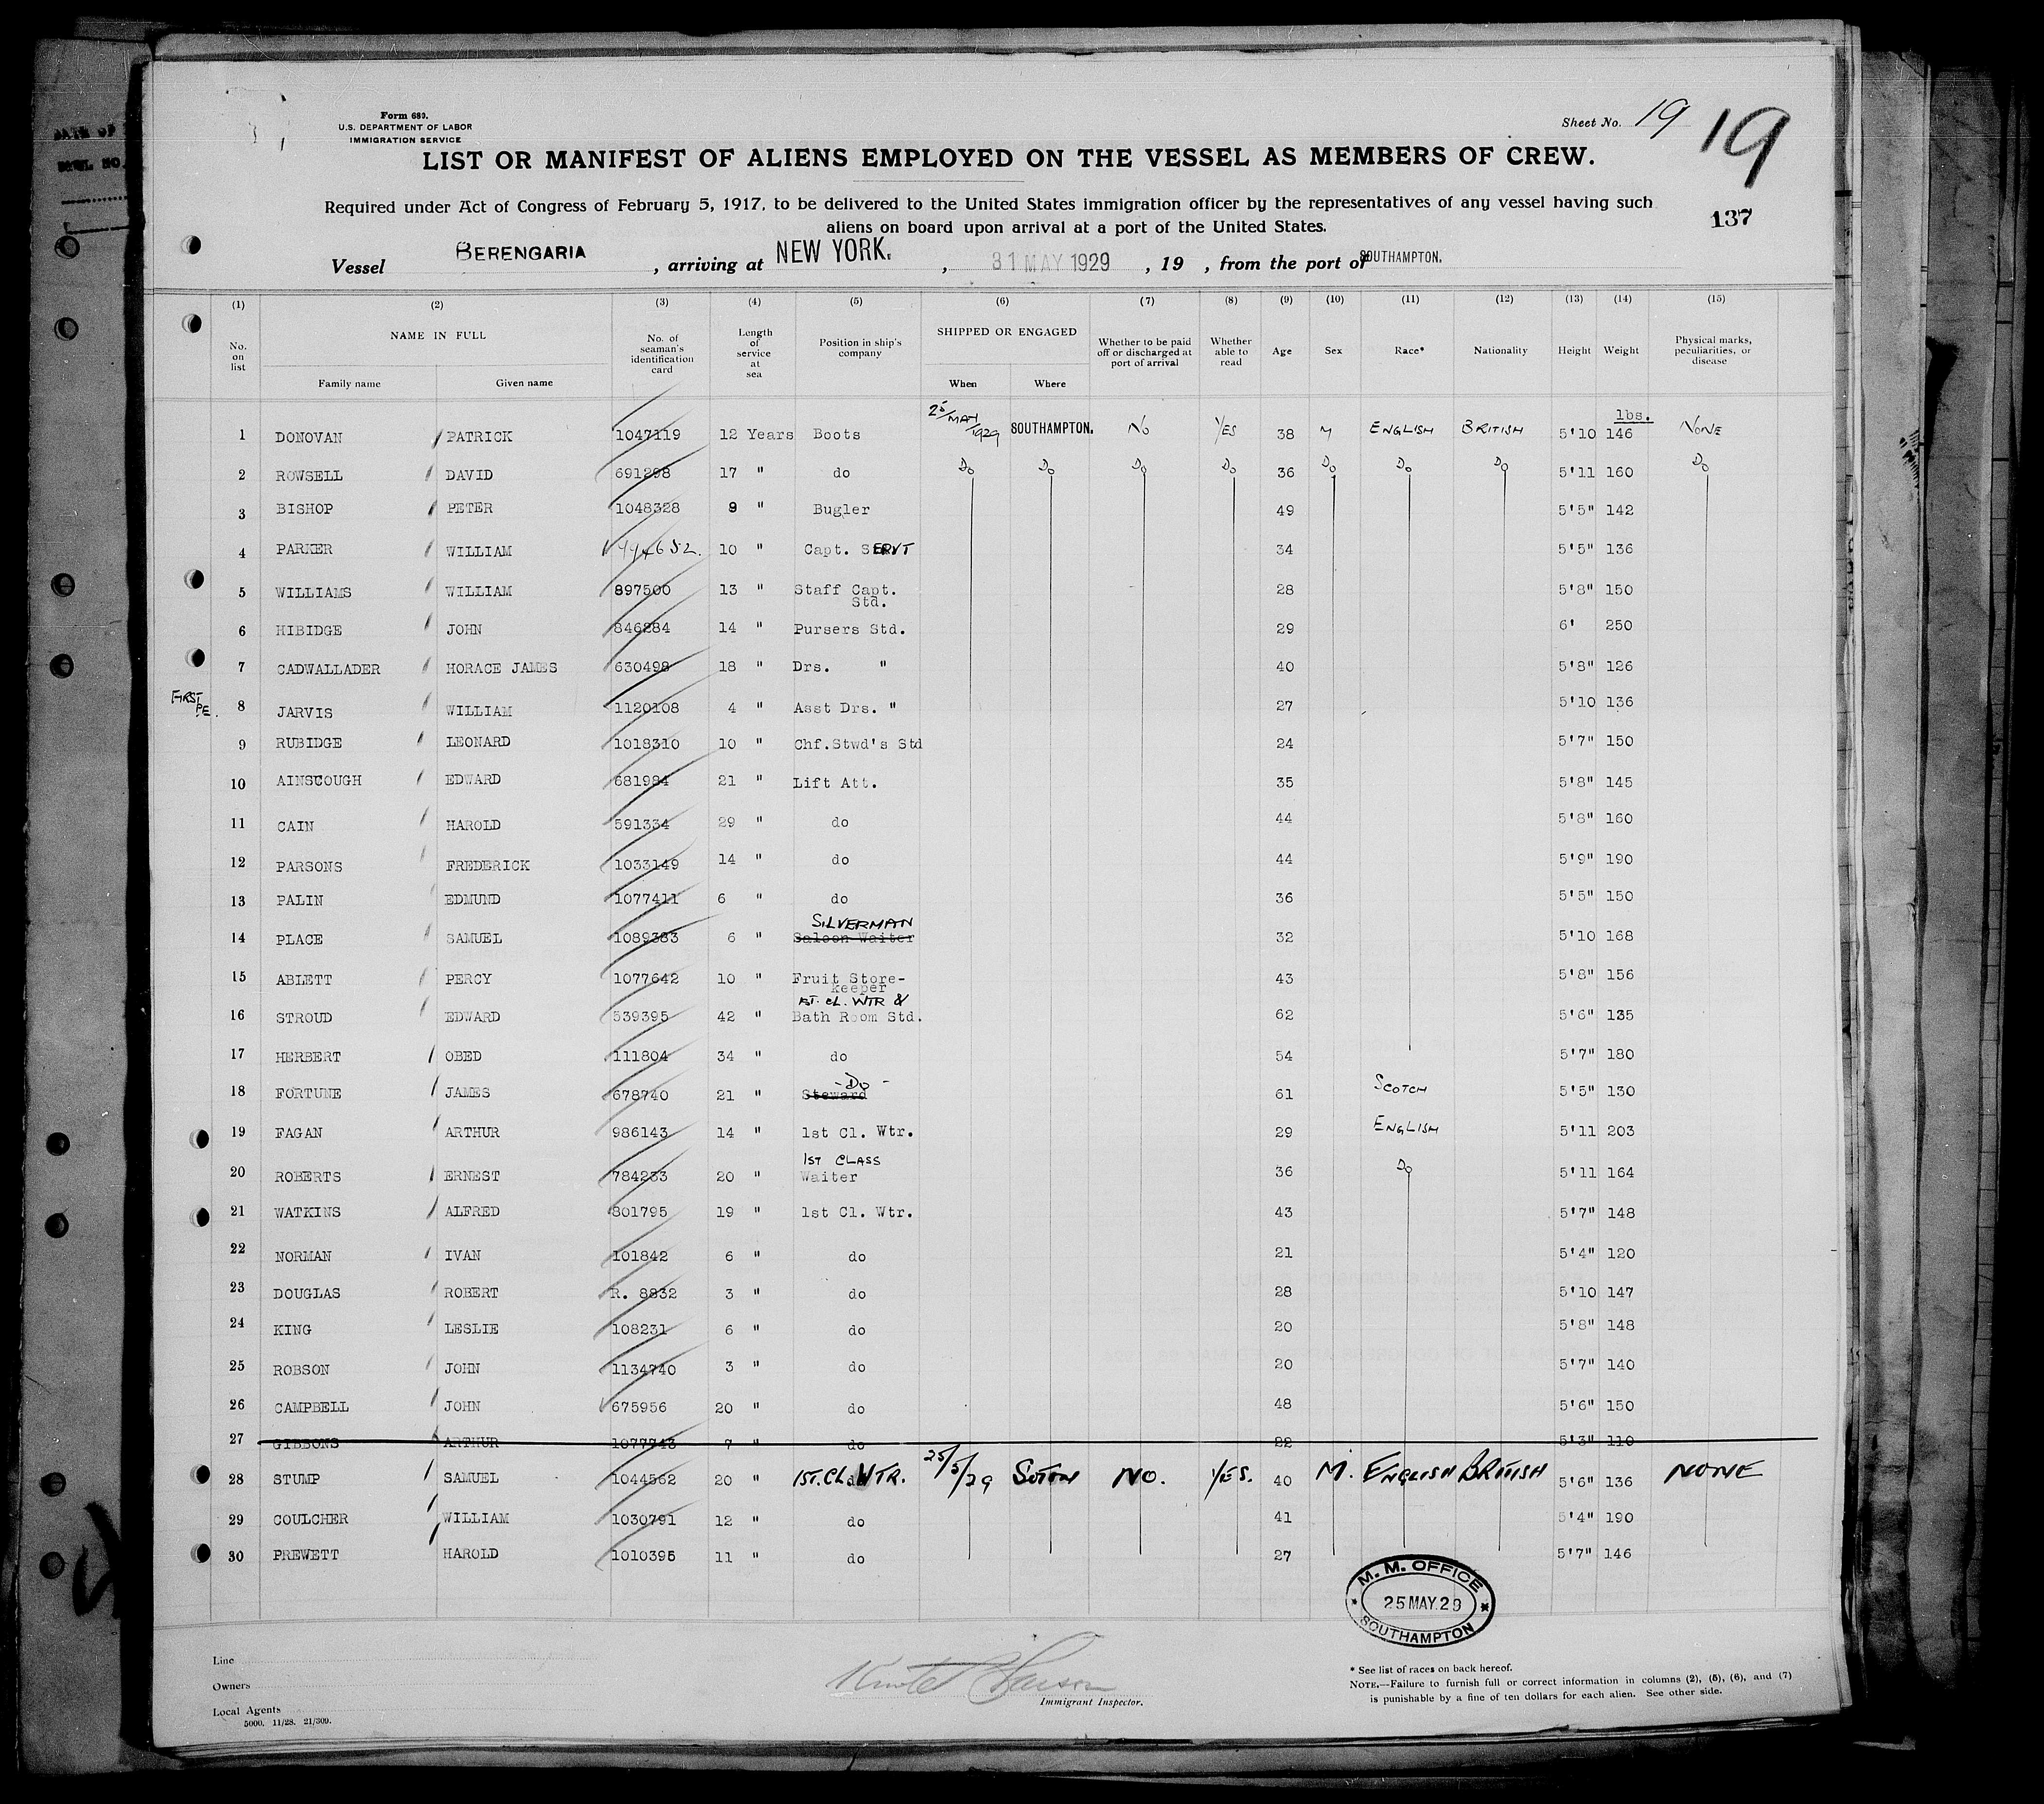 Form 689.
U.S. DEPARTMENT OF LABOR
IMMIGRATION SERVICE
Sheet No. 19 19
LIST OR MANIFEST OF ALIENS EMPLOYED ON THE VESSEL AS MEMBERS OF CREW.
Required under Act of Congress of February 5, 1917, to be delivered to the United States immigration officer by the representatives of any vessel having such
aliens on board upon arrival at a port of the United States.
137
Vessel BERENGARIA, arriving at NEW YORK. , 31 MAY 1929 , 19 , from the port of SOUTHAMPTON.
(1) (2) (3) (4) (5) (6) (7) (8) (9) (10) (11) (12) (13) (14) (15)
No. on list NAME IN FULL Family name Given name No. of seaman's identification card Length of service at sea Position in ship's company SHIPPED OR ENGAGED When Where Whether to be paid off or discharged at port of arrival Whether able to read Age Sex Race* Nationality Height Weight Physical marks, peculiarities, or disease
lbs.
1 DONOVAN PATRICK 1047119 12 Years Boots 25/MAY/1929 SOUTHAMPTON. No YES 38 M ENGLISH BRITISH 5'10 146 NONE
2 ROWSELL DAVID 691298 17 " do Do Do Do Do 36 Do Do Do 5'11 160 Do
3 BISHOP PETER 1048328 9 " Bugler 49 5'5" 142
4 PARKER WILLIAM 10 " Capt. SERVT 34 5'5" 136
5 WILLIAMS WILLIAM 897500 13 " Staff Capt. Std. 28 5'8" 150
6 HIBIDGE JOHN 846284 14 " Pursers Std. 29 6' 250
7 CADWALLADER HORACE JAMES 630498 18 " Drs. " 40 5'8" 126
FIRST
8 JARVIS WILLIAM 1120108 4 " Asst Drs. " 27 5'10 136
9 RUBIDGE LEONARD 1018310 10 " Chf.Stwd's Std 24 5'7" 150
10 AINSCOUGH EDWARD 681984 21 " Lift Att. 35 5'8" 145
11 CAIN HAROLD 591334 29 " do 44 5'8" 160
12 PARSONS FREDERICK 1033149 14 " do 44 5'9" 190
13 PALIN EDMUND 1077411 6 " do 36 5'5" 150
SILVERMAN
14 PLACE SAMUEL 1089383 6 " Saloon Waiter 32 5'10 168
15 ABLETT PERCY 1077642 10 " Fruit Store-keeper 43 5'8" 156
1ST. CL. WTR &
16 STROUD EDWARD 539395 42 " Bath Room Std. 62 5'6" 135
17 HERBERT OBED 111804 34 " do 54 5'7" 180
- Do -
18 FORTUNE JAMES 678740 21 " Steward 61 SCOTCH 5'5" 130
19 FAGAN ARTHUR 986143 14 " 1st Cl. Wtr. 29 ENGLISH 5'11 203
1ST CLASS
20 ROBERTS ERNEST 784233 20 " Waiter 36 Do 5'11 164
21 WATKINS ALFRED 801795 19 " 1st Cl. Wtr. 43 5'7" 148
22 NORMAN IVAN 101842 6 " do 21 5'4" 120
23 DOUGLAS ROBERT R. 8832 3 " do 28 5'10 147
24 KING LESLIE 108231 6 " do 20 5'8" 148
25 ROBSON JOHN 1134740 3 " do 20 5'7" 140
26 CAMPBELL JOHN 675956 20 " do 48 5'6" 150
27 GIBBONS ARTHUR 1077743 7 " do 22 5'3" 110
28 STUMP SAMUEL 1044562 20 " 1ST. CL. WTR. 25/5/29 SOTON NO. YES. 40 M. ENGLISH BRITISH 5'6" 136 NONE
29 COULCHER WILLIAM 1030791 12 " do 41 5'4" 190
30 PREWETT HAROLD 1010395 11 " do 27 5'7" 146
M. M. OFFICE
25 MAY.29
SOUTHAMPTON
Line
Owners
Local Agents
5000. 11/28. 21/309.
Immigrant Inspector.
* See list of races on back hereof.
NOTE.—Failure to furnish full or correct information in columns (2), (5), (6), and (7)
is punishable by a fine of ten dollars for each alien. See other side.